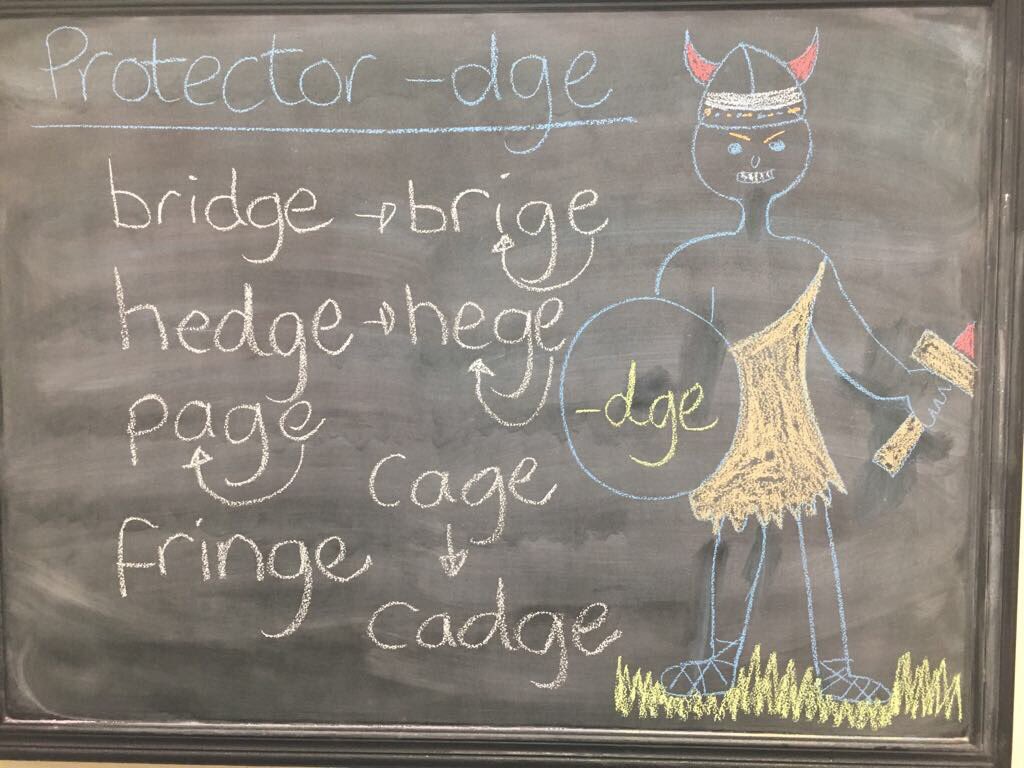 Protector -dge
bridge → brige
hedge → hege
page
cage
fringe
cadge
-dge